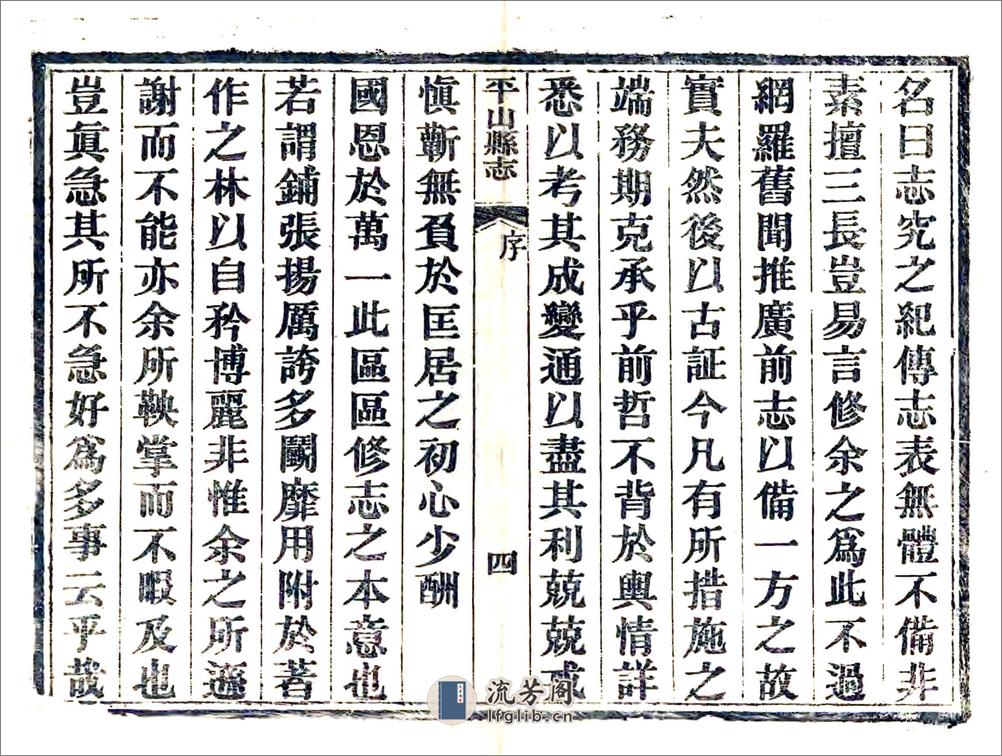 名曰志究之紀傳志表無體不備非
素擅三長豈易言修余之爲此不過
網羅舊聞推廣前志以備一方之故
實夫然後以古証今凡有所措施之
端務期克承乎前哲不背於輿情詳
悉以考其成變通以盡其利兢兢戒
愼蘄無負於匡居之初心少酬
平山縣志
序
四
國恩於萬一此區區修志之本意也
若謂鋪張揚厲誇多鬬靡用附於著
作之林以自矜博麗非惟余之所遜
謝而不能亦余所鞅掌而不暇及也
豈眞急其所不急好爲多事云乎哉
流芳阁
lfglib.cn